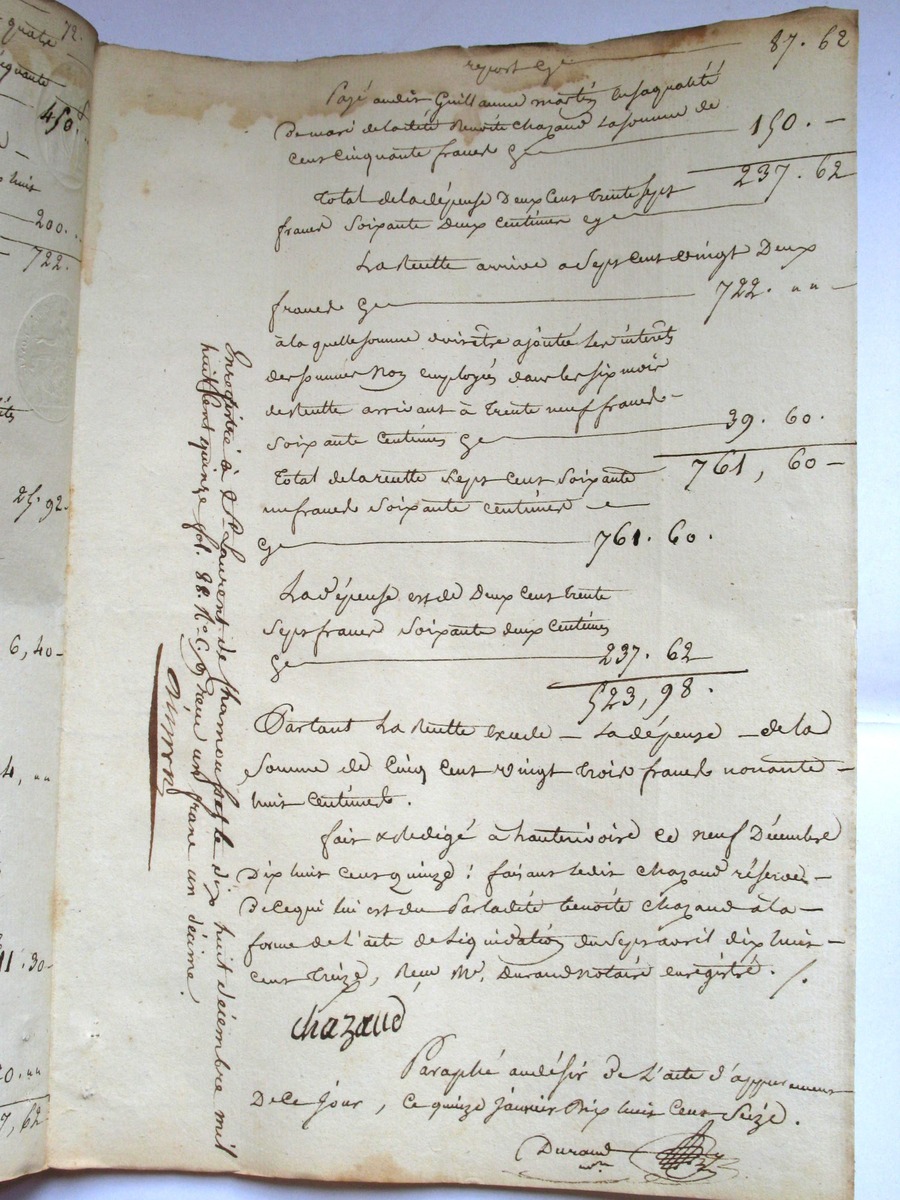 quatre 72.
cinquante
450.
huit
200..
722.
25.92.
6,40-
4, ""
11.30-
0.""
7,62
report Cy 87.62
Payé audit Guillaume martin en sa qualité
De mari de ladite Benoite Chazaud La somme de
cent cinquante francs Cy 150. -
Total de la dépense Deux cent trente sept 237.62
francs soixante Deux centimes cy
La Recette arrive a sept cent vingt Deux
francs Cy 722. "" -
à la quelle somme doivent être ajoutés les intérêts
des sommes Non employés dans les six mois
de Recette arrivant à trente neuf francs
soixante centimes Cy 39.60.
Total de la recette sept cent soixante 761,60-
un francs soixante centimes
Cy 761.60.
La dépense est de Deux cent trente
sept francs soixante deux centimes
Cy 237.62
523,98.
Partant La Recette Excede - La dépense - de la
somme de Cinq cent vingt trois francs nonante -
huit centimes.
fait & Rédigé à hauterivoire ce neuf Décembre
Dix huit cent quinze : faisant ledit chazaud réserve -
De ce qui lui est du Par ladite Benoite Chazaud a la -
forme de l'acte de liquidation du sept avril dix huit -
cent treize, Reçu Me. Durand Notaire enregistré. /.
chazaud
Paraphé au désir de l'acte d'appurement
De ce jour, ce quinze janvier Dix huit cent seize.
Durand
nre
Enregistré à St Laurent de Chamousset le dix huit décembre mil
huit cent quinze fol. 88. Rº C. 9 reçu un franc un décime.